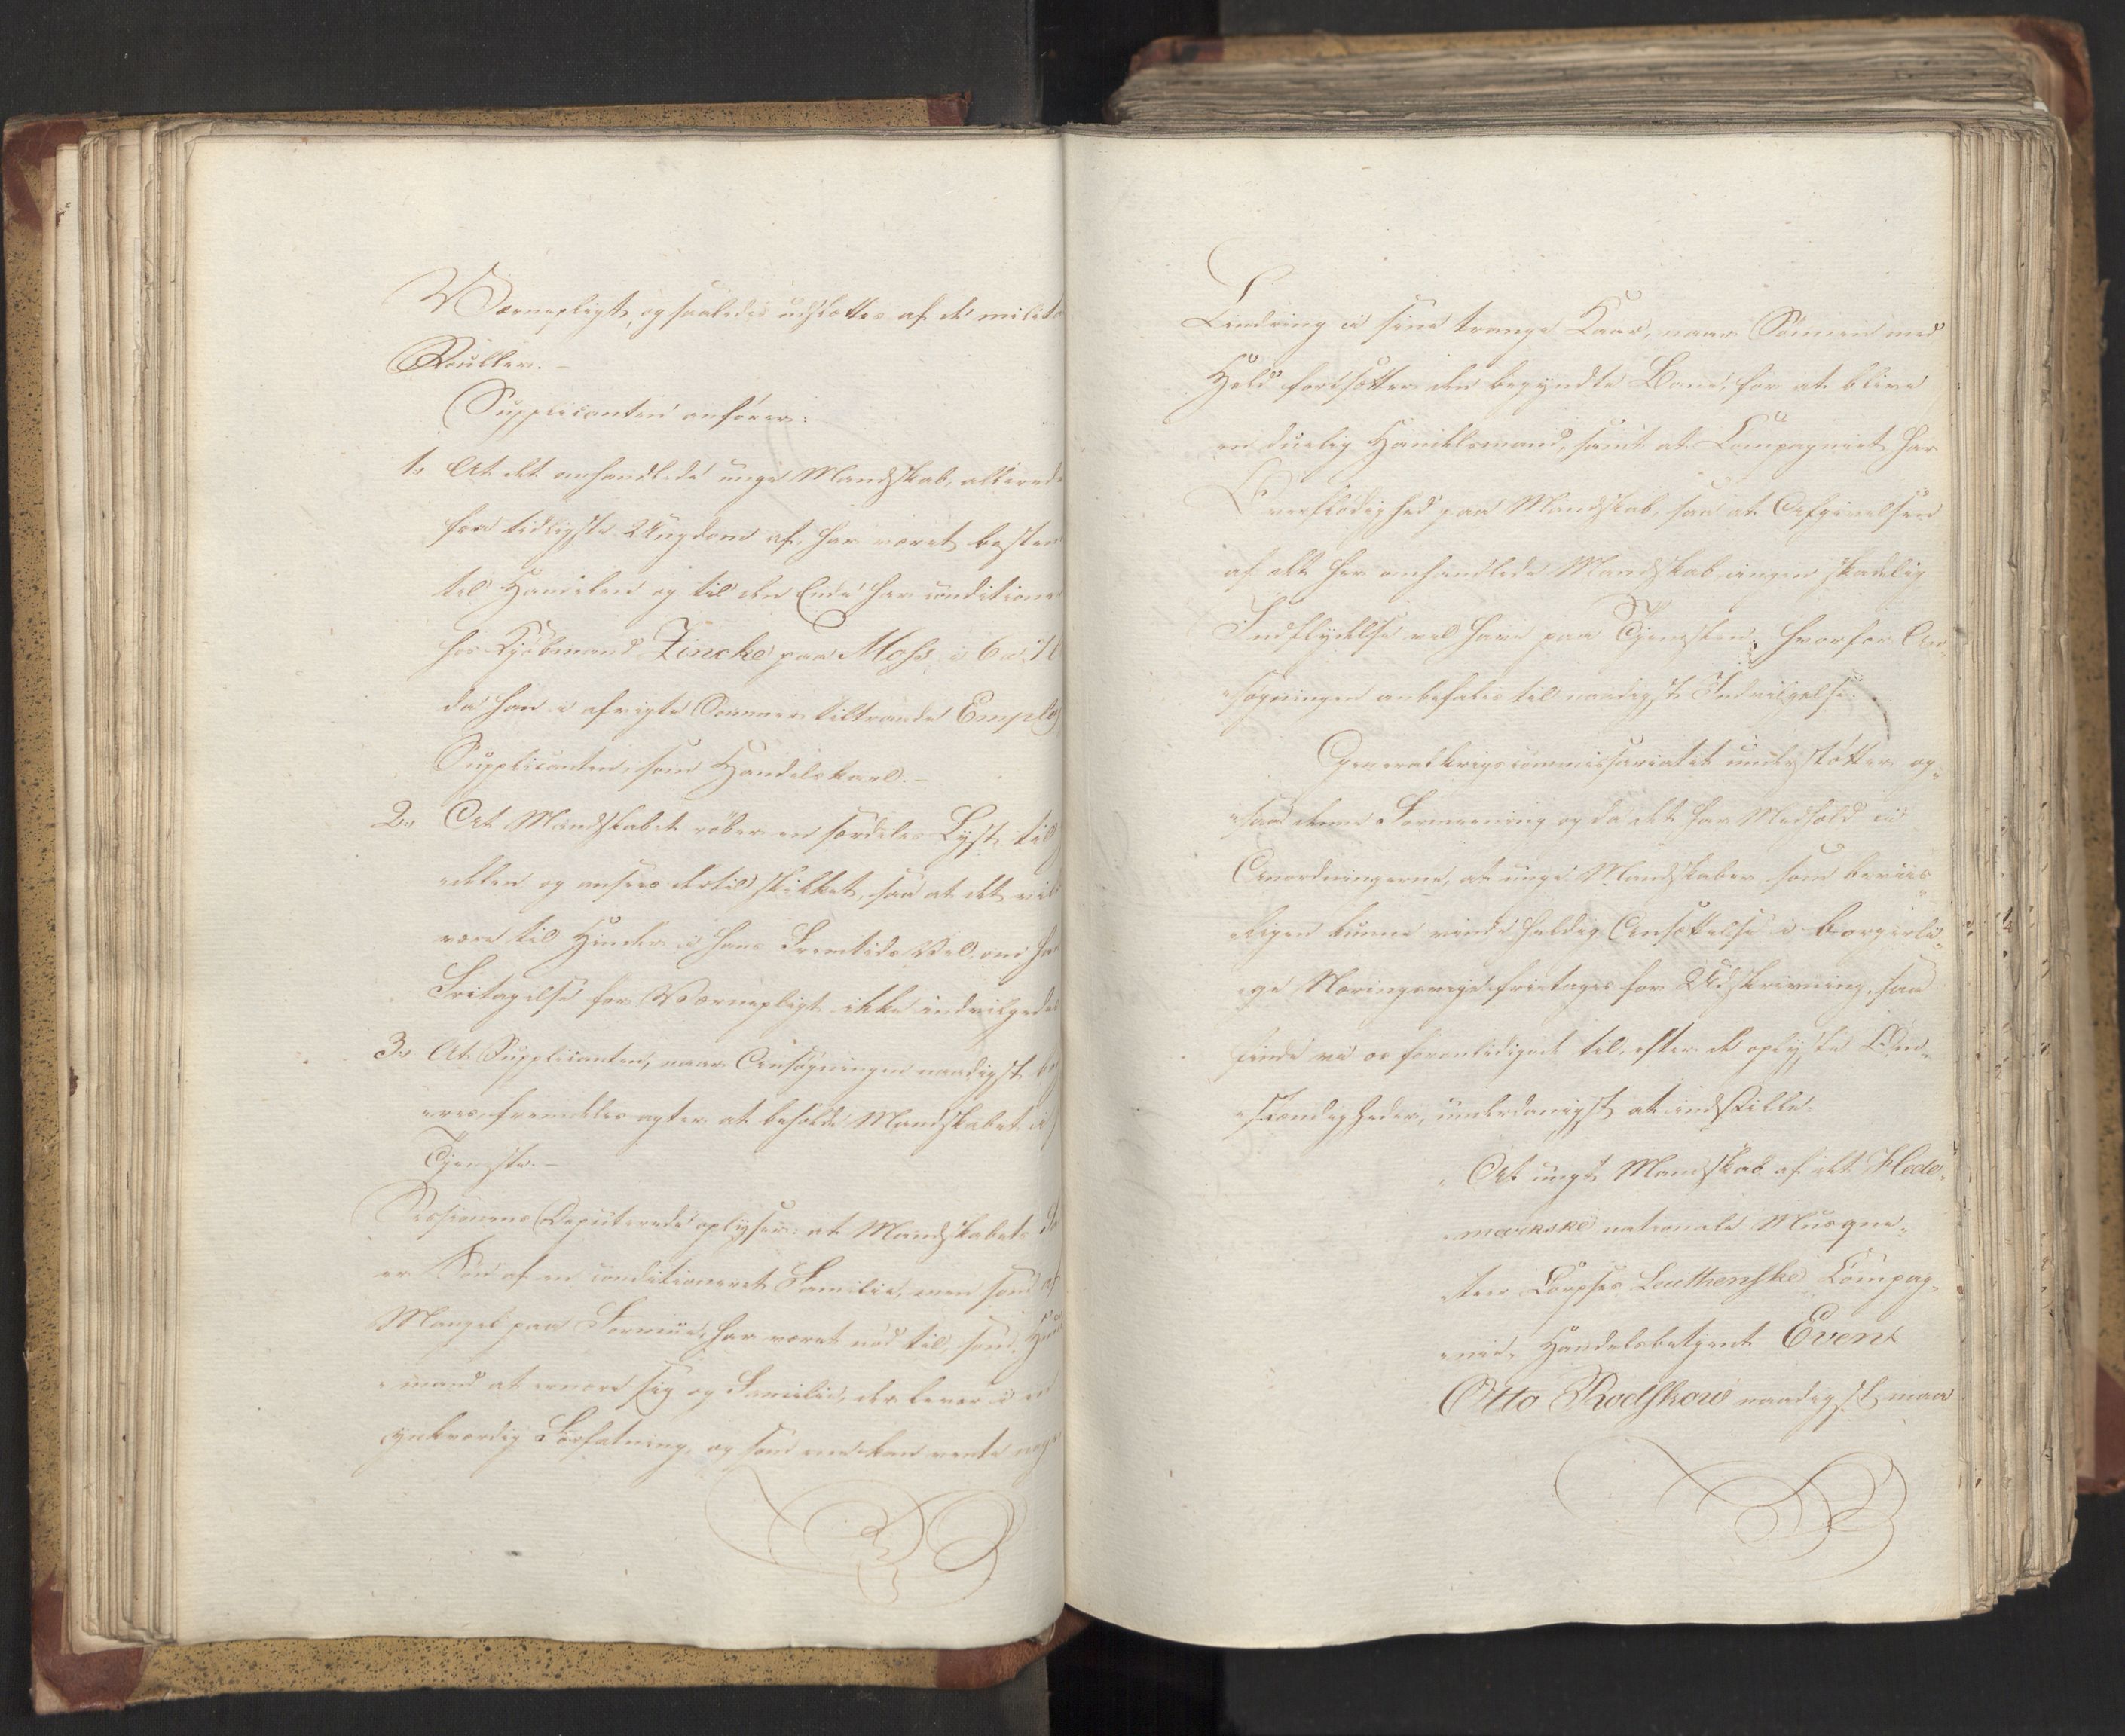 Værnepligt, og saaledes udslættes af de milita
Rouller. –
Supplicanten anfører:
1, At det omhandlede unge Mandskab, allerede
fra tidligste Ungdom af, har været bestem
til Handelen og til den Ende har conditione
hos Kjøbmand Zincke paa Moss i 6 a 7
da han i afvigte Sommer tiltraadte Employ
Supplicanten, som Handelskarl. –
2, At Mandskabet røber en særdeles Lyst til
delen og ansees dertil skikket, saa at det vil
være til Hinder i hans Fremtids Vel, om ha
Fritagelse for Værnepligt ikke indvilgedes
3, At Supplicanten, naar Ansøgningen naadigst be
fremdeles agter at beholde Mandskabet i
Tjeneste. –
Sessionens Deputerede oplyser: at Mandskabets
er Søn af en conditioneret Familie, men som af
Mangel paa Formue, har været nød til, som
mand at ernære sig og Familie, der lever i en
ynkværdig Forfatning, og som kan vente
Lindring i sine trange Kaar, naar Sønnen med
Held fortsætter den begyndte Bane, for at blive
en duelig Handelsmand, samt at Compagniet har
Overflødighed paa Mandskab, saa at Afgivelsen
af det her omhandlede Mandskab ingen skadelig
Indflydelse vil have paa Tjenesten, hvorfor An-
søgningen anbefales til naadigst Indvilgelse.
Generalkrigscommissariatet understøtter og-
saa denne Formening og da det har Medhold i
Anordningerne, at unge Mandskaber som beviis-
ligen kunne vinde heldig Ansættelse i borgerli-
ge Næringsveje fritages for Udskrivning, saa
finde vi os foranlediget til, efter de oplyste Om-
stændigheder, underdanigst at indstille:
At ungt Mandskab af det Hede-
markske nationale Musque-
teer Corpses Leuthenske Compag-
nie, Handelsbetjent Even
Otto Rodskow naadigst maa